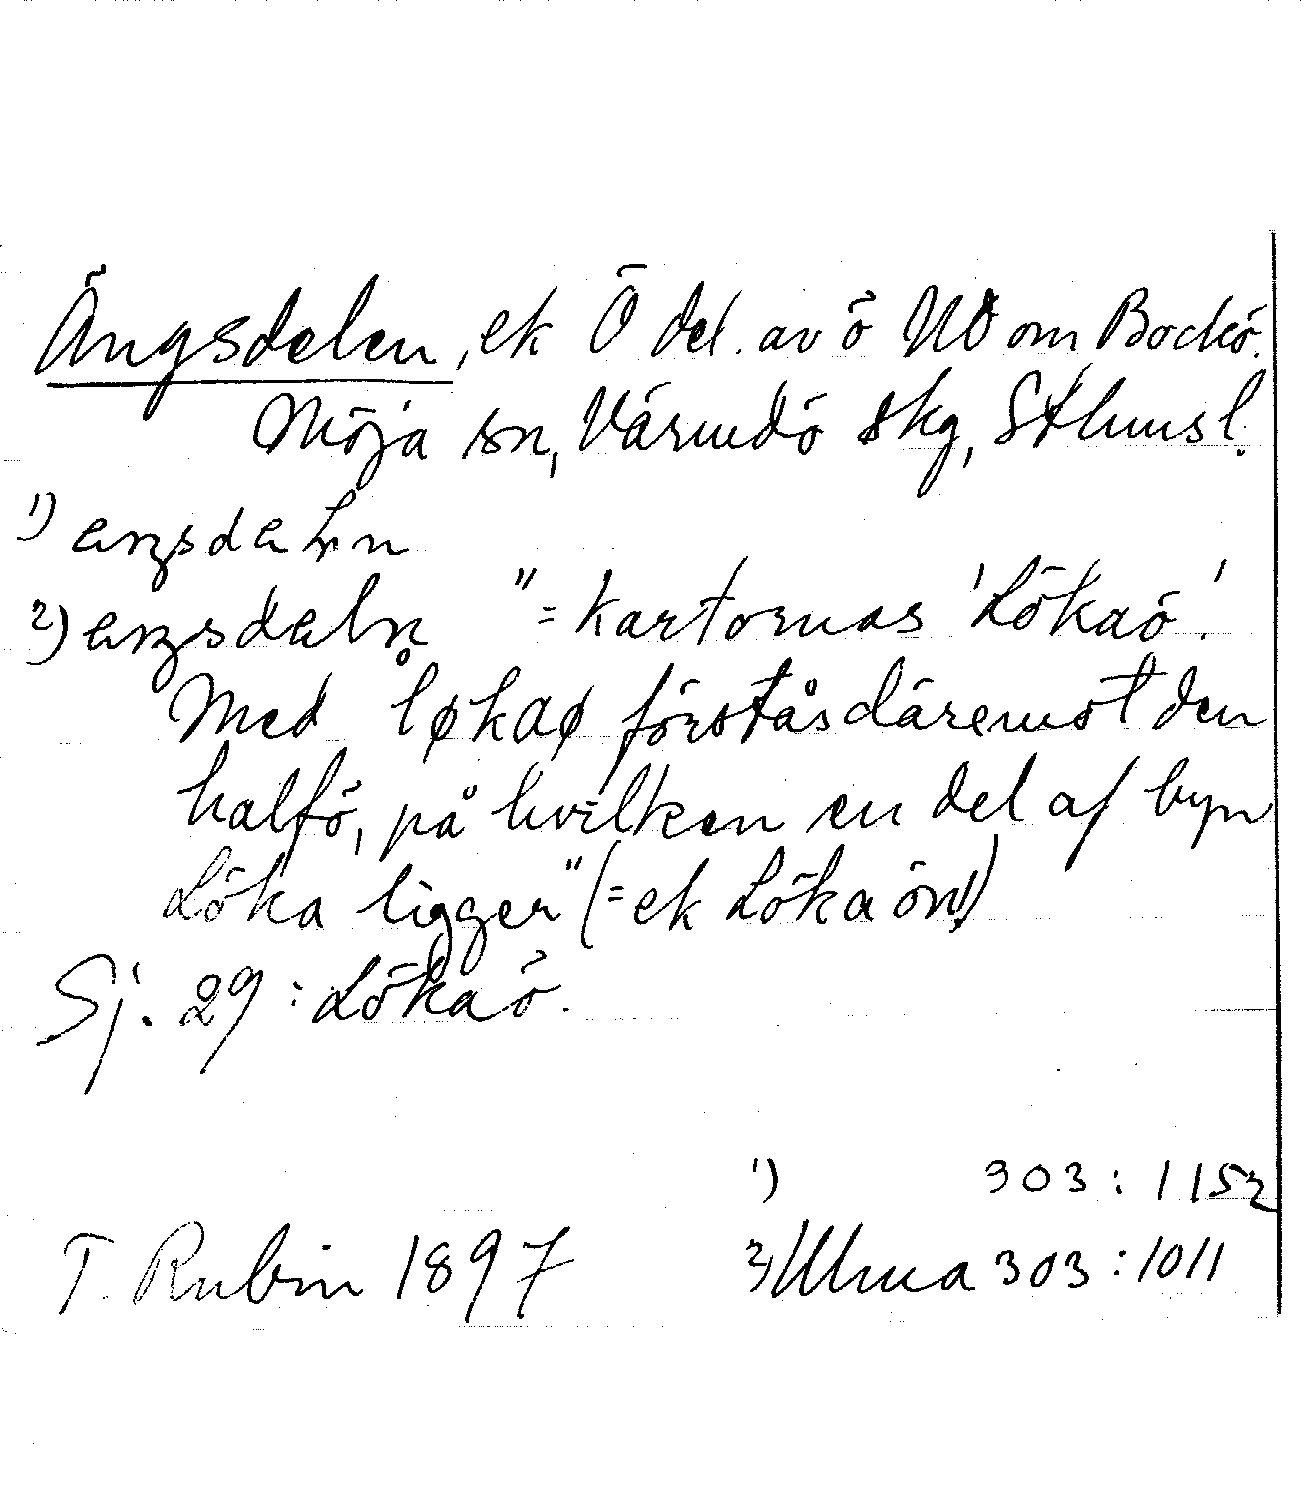 Ängsdelen, ek Ö del. av ö NO om Bockö.
Möja sn, Värmdö skg, Sthms l.
1)
2) "= kartornas 'Lökaö'.
Med løkaø förstås däremot den
halfö, på hvilken en del af byn
Löka ligger" (= ek Lökaön!)
Sj. 29: Lökaö.
1) 303:1152
T. Rubin 1897 2) Ulma 303:1011